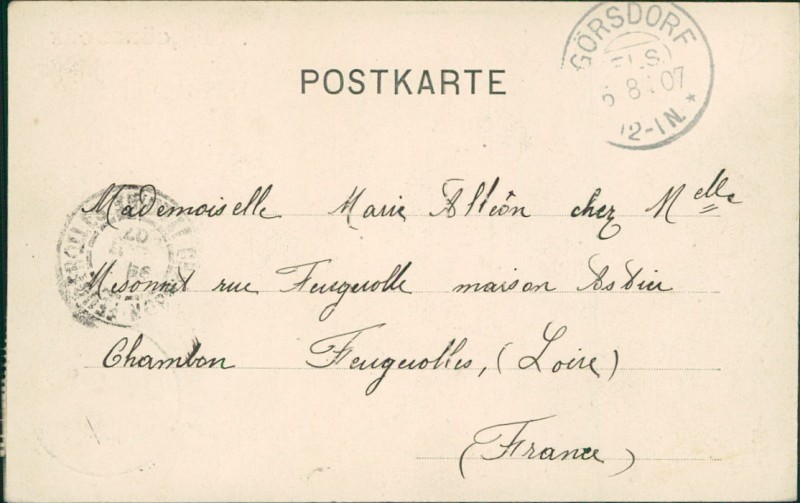 GÖRSDORF
ELS.
8. 07
12-1N. *
POSTKARTE
Mademoiselle Marie Alléon chez Melle
Mesonnet rue Feugerolle maison Astier
Chambon Feugerolles, (Loire)
(France)